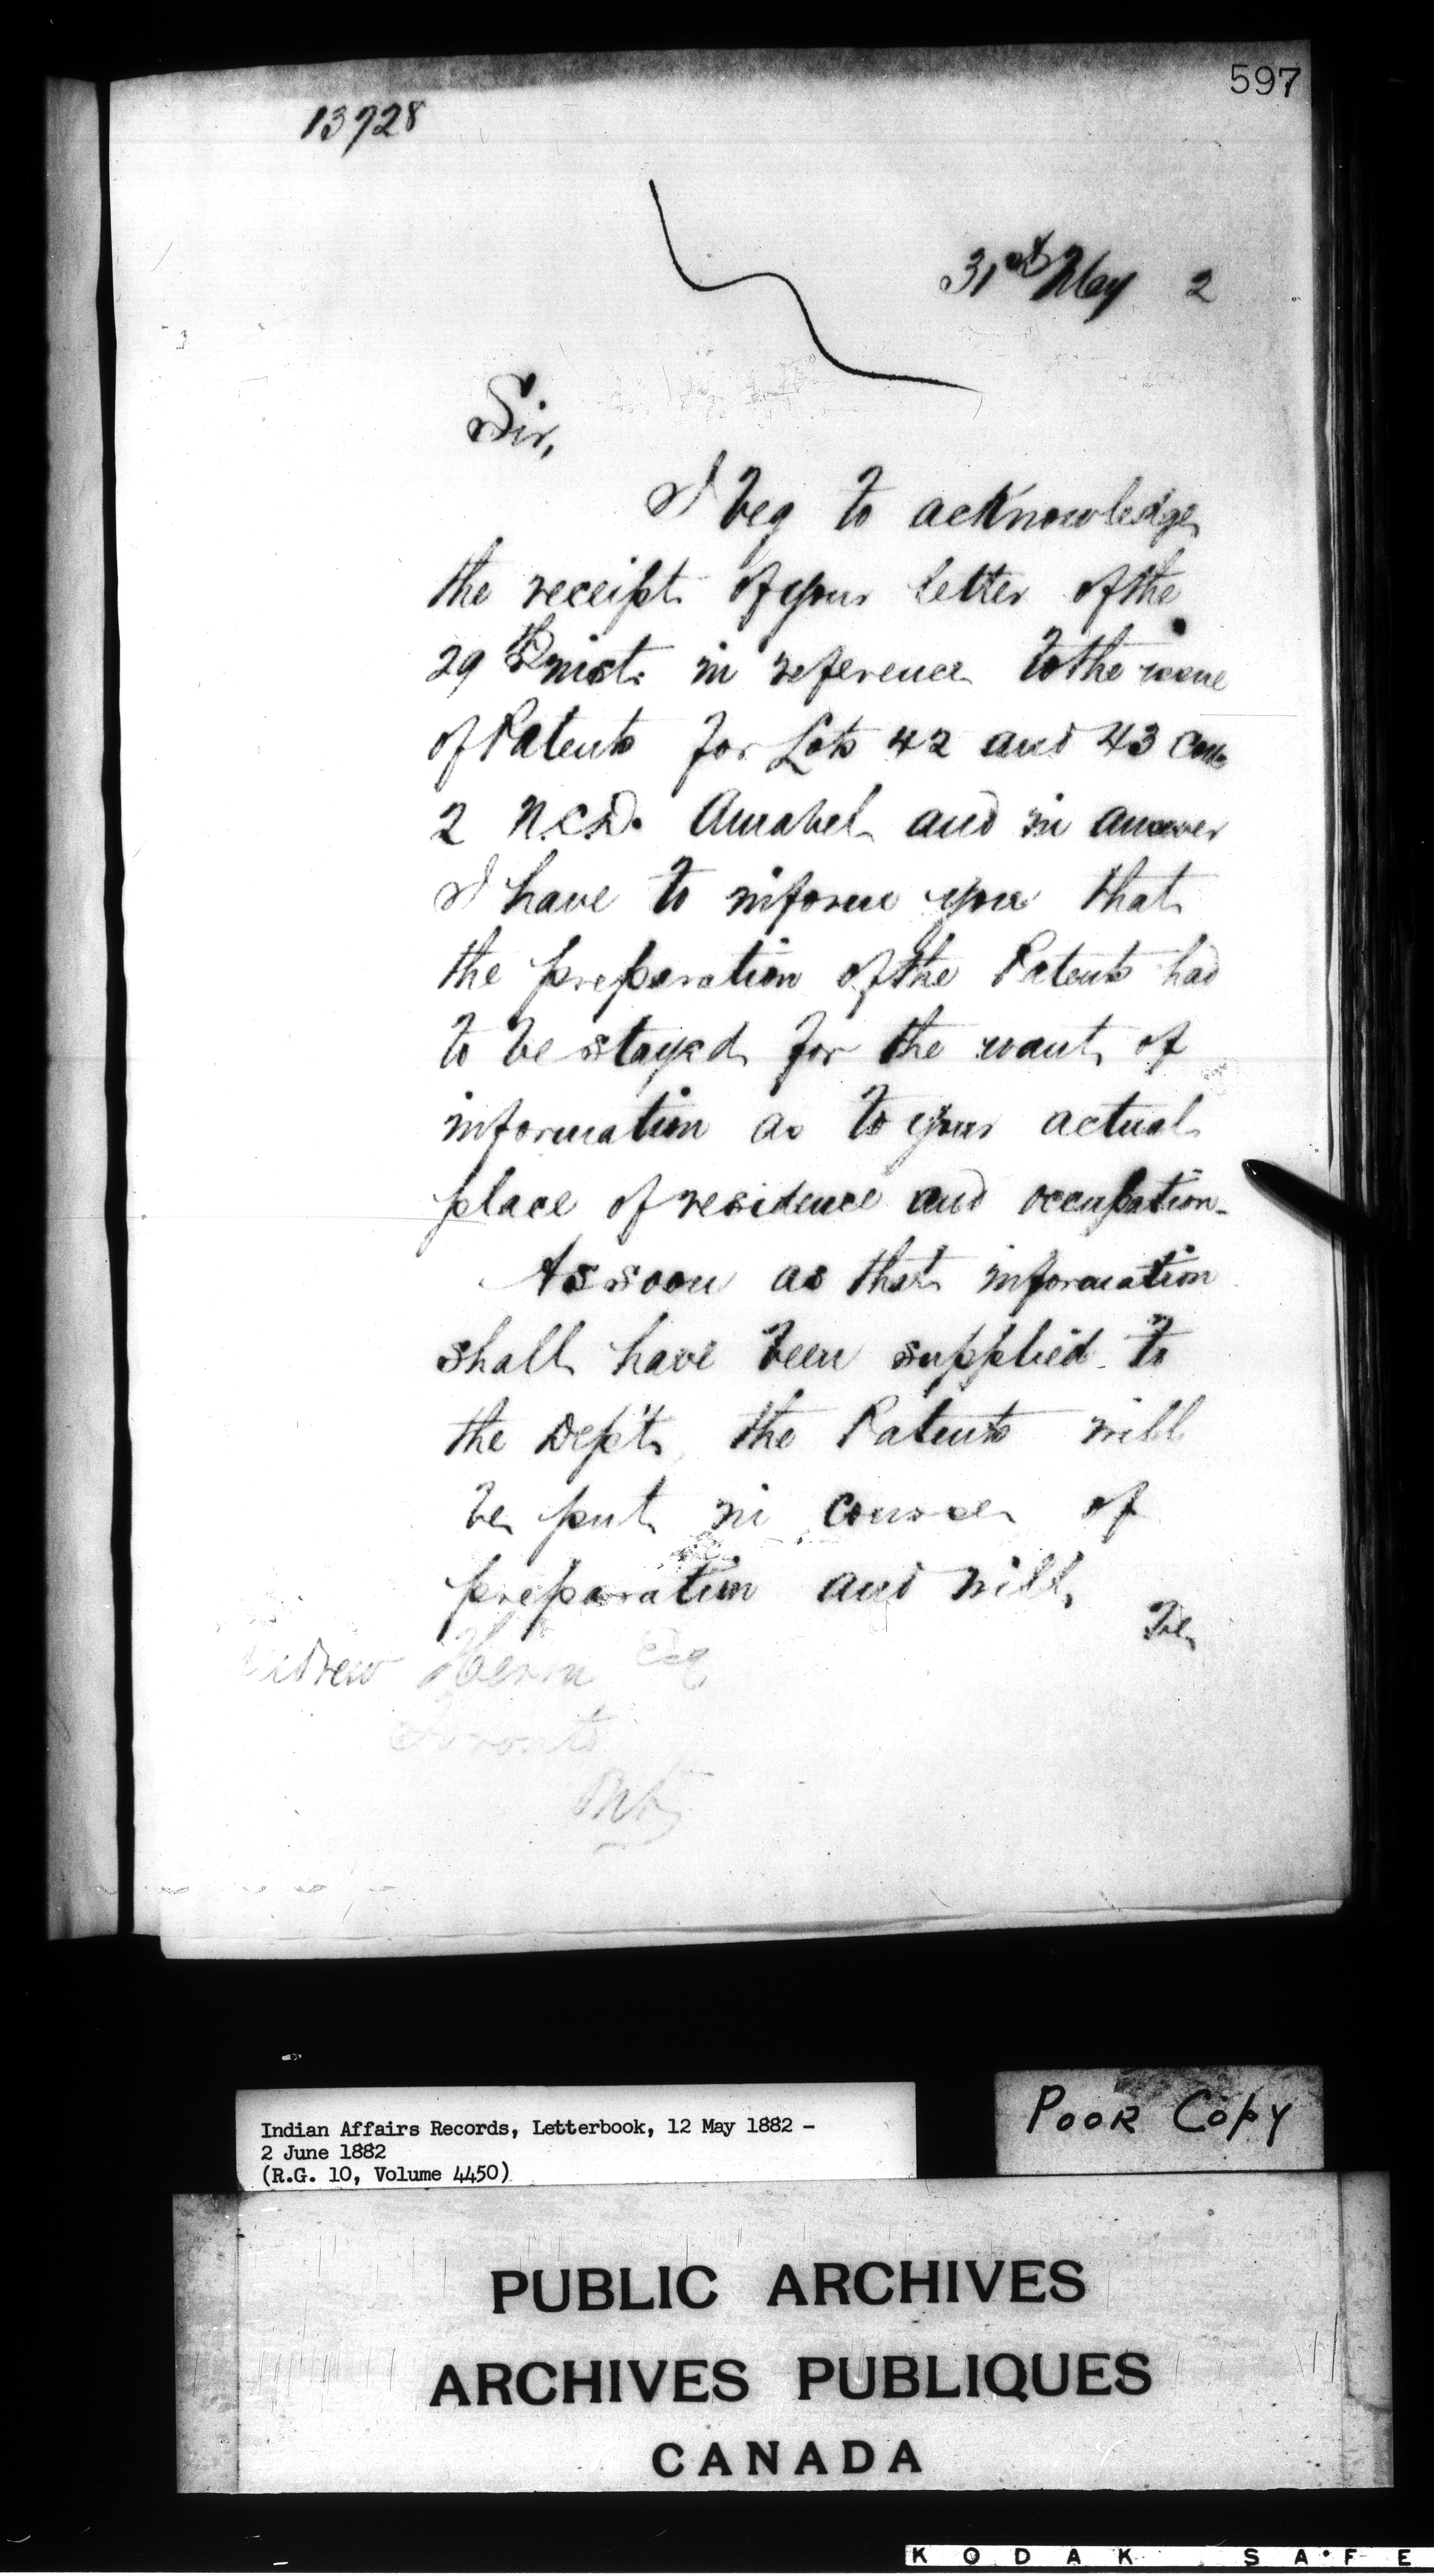 597
13728
31st May 2
Sir,
I beg to acknowledge
the receipt of your letter of the
29th inst. in reference to the issue
of Patents for Lots 42 and 43 Con.
2 N.C.D. Amabel and in answer
I have to inform you that
the preparation of the Patents had
to be stayed for the want of
information as to your actual
place of residence and occupation.
As soon as that information
shall have been supplied to
the Dept. the Patents will
be put in course of
preparation and will
be
Andrew Esq
Toronto
Indian Affairs Records, Letterbook, 12 May 1882 -
2 June 1882
(R.G. 10, Volume 4450)
POOR COPY
PUBLIC ARCHIVES
ARCHIVES PUBLIQUES
CANADA
KODAK SAFE